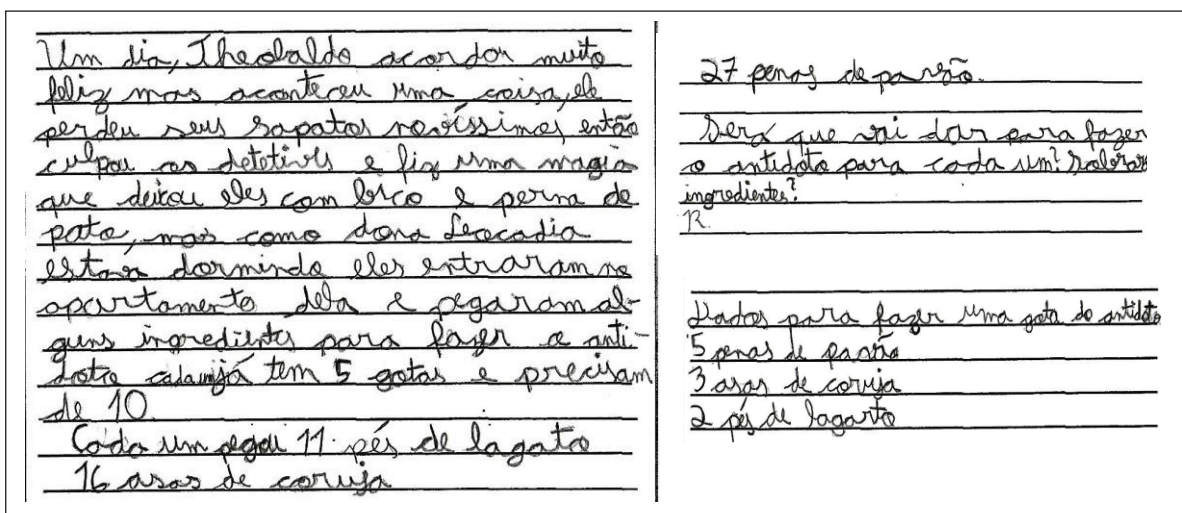 Um dia, Theobaldo acordor muito
feliz mas aconteceu uma coisa, ele
perdeu seus sapatos novíssimos, então
culpou os detetives e fiz uma magia
que deixou eles com bico e perna de
pato, mas como dona Leocadia
estava dormindo eles entraram no
apartamento dela e pegaram al-
guns ingredientes para fazer o anti-
doto cada um já tem 5 gotas e precisam
de 10.
Cada um pegou 11 pés de lagato
16 asas de coruja
27 penas de pavão.
Será que vai dar para fazer
o antidoto para cada um? Sobrara
ingredientes?
R.
Dados para fazer uma gota do antidoto
5 penas de pavão
3 asas de coruja
2 pés de lagarto